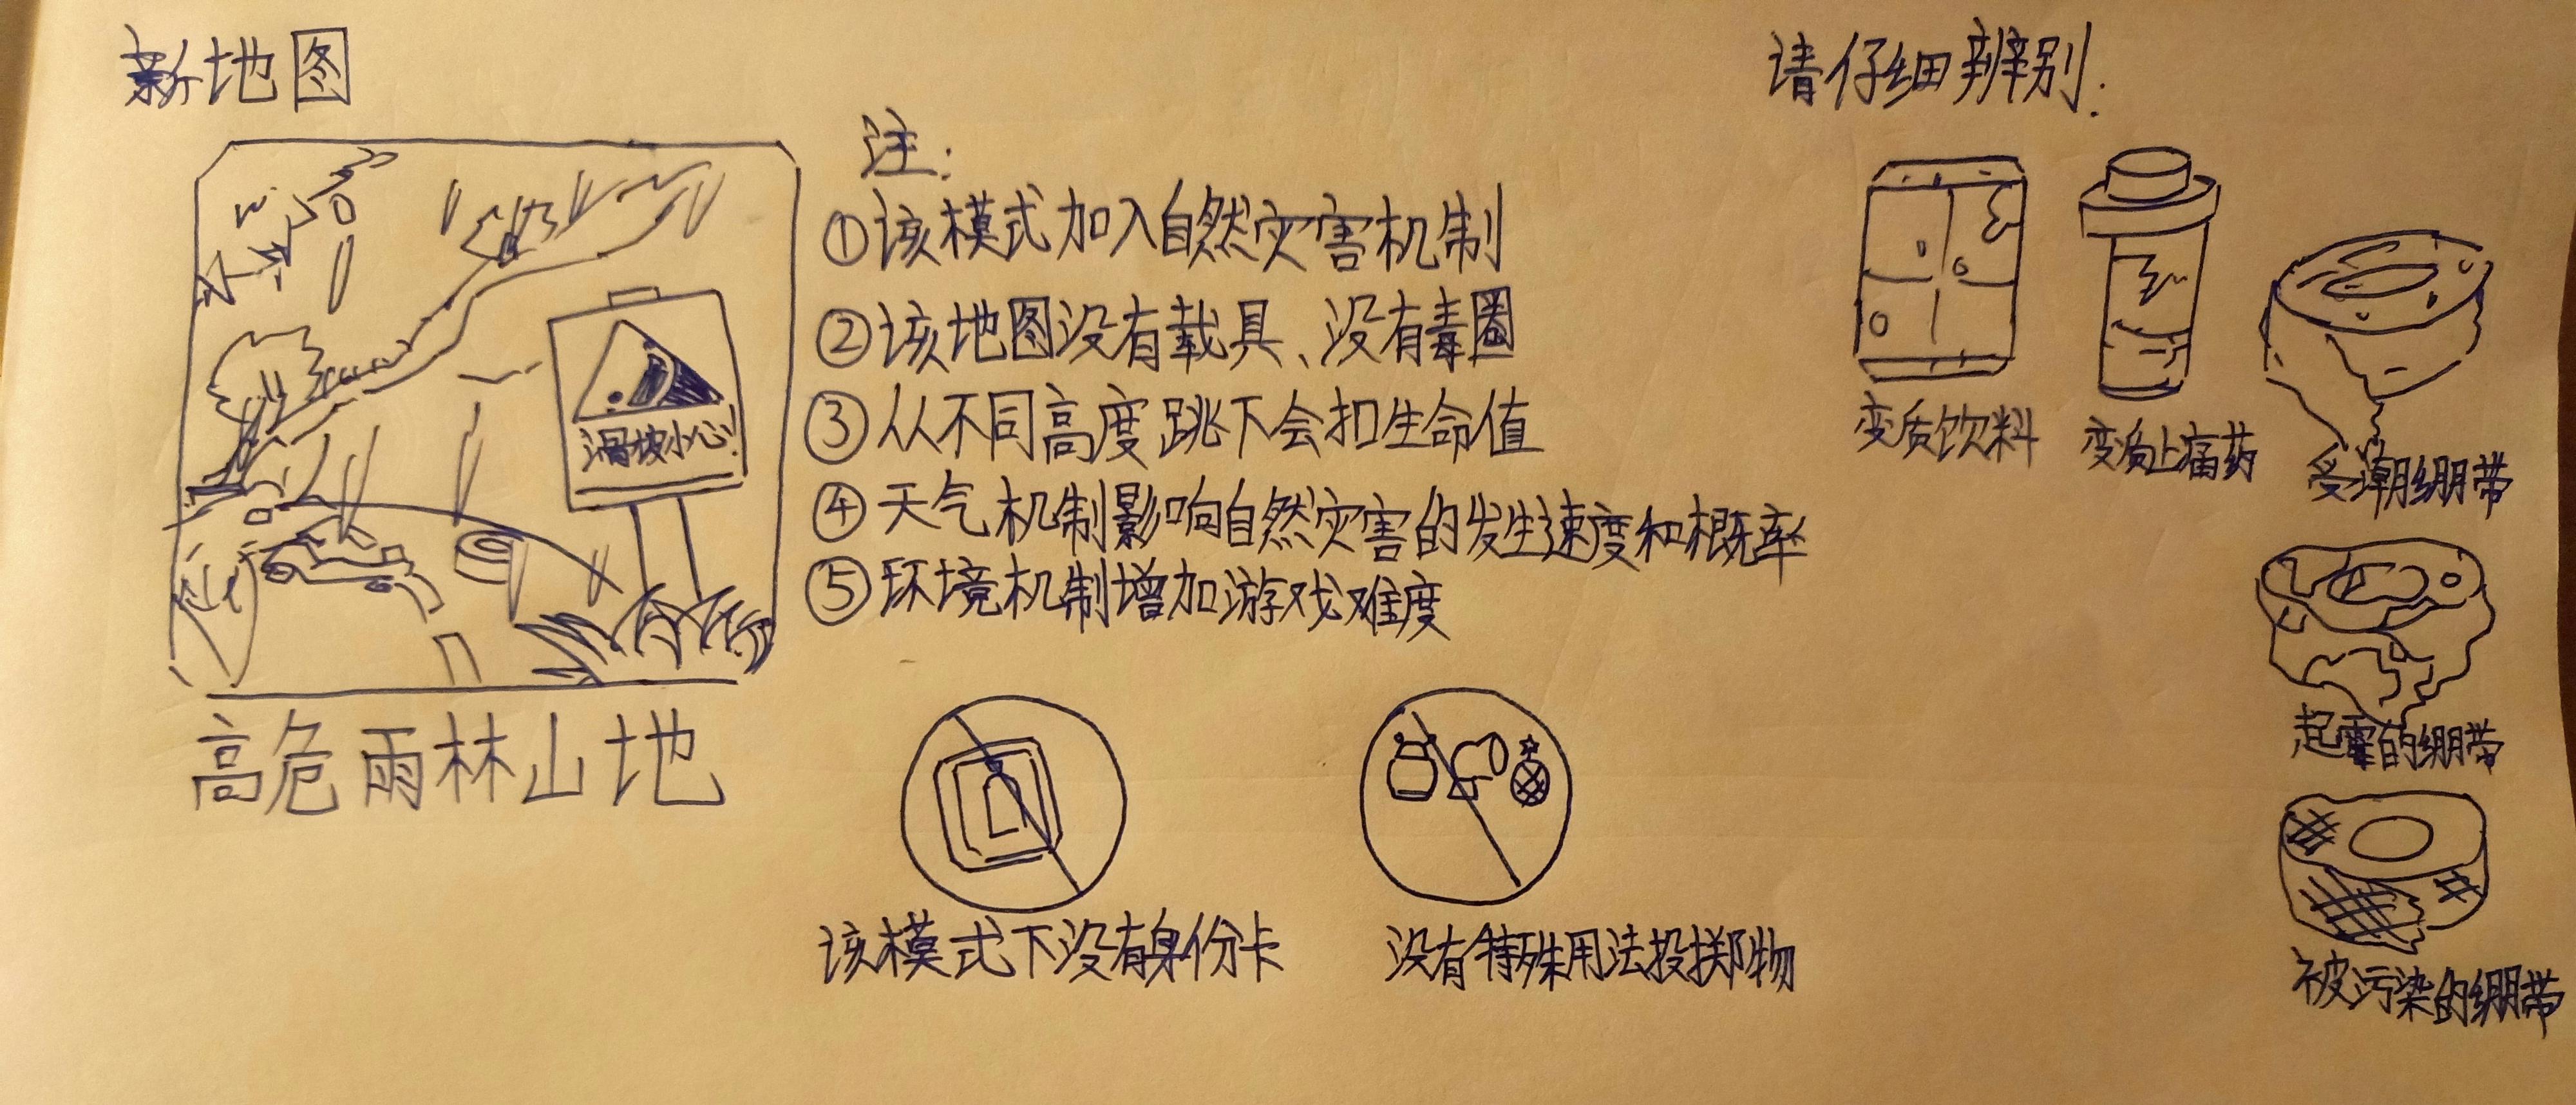 新地图
滑坡小心!
高危雨林山地
注:
①该模式加入自然灾害机制
②该地图没有载具、没有毒圈
③从不同高度跳下会扣生命值
④天气机制影响自然灾害的发生速度和概率
⑤环境机制增加游戏难度
该模式下没有身份卡
没有特殊用法投掷物
请仔细辨别:
变质饮料
变质止痛药
受潮绷带
起霉的绷带
被污染的绷带